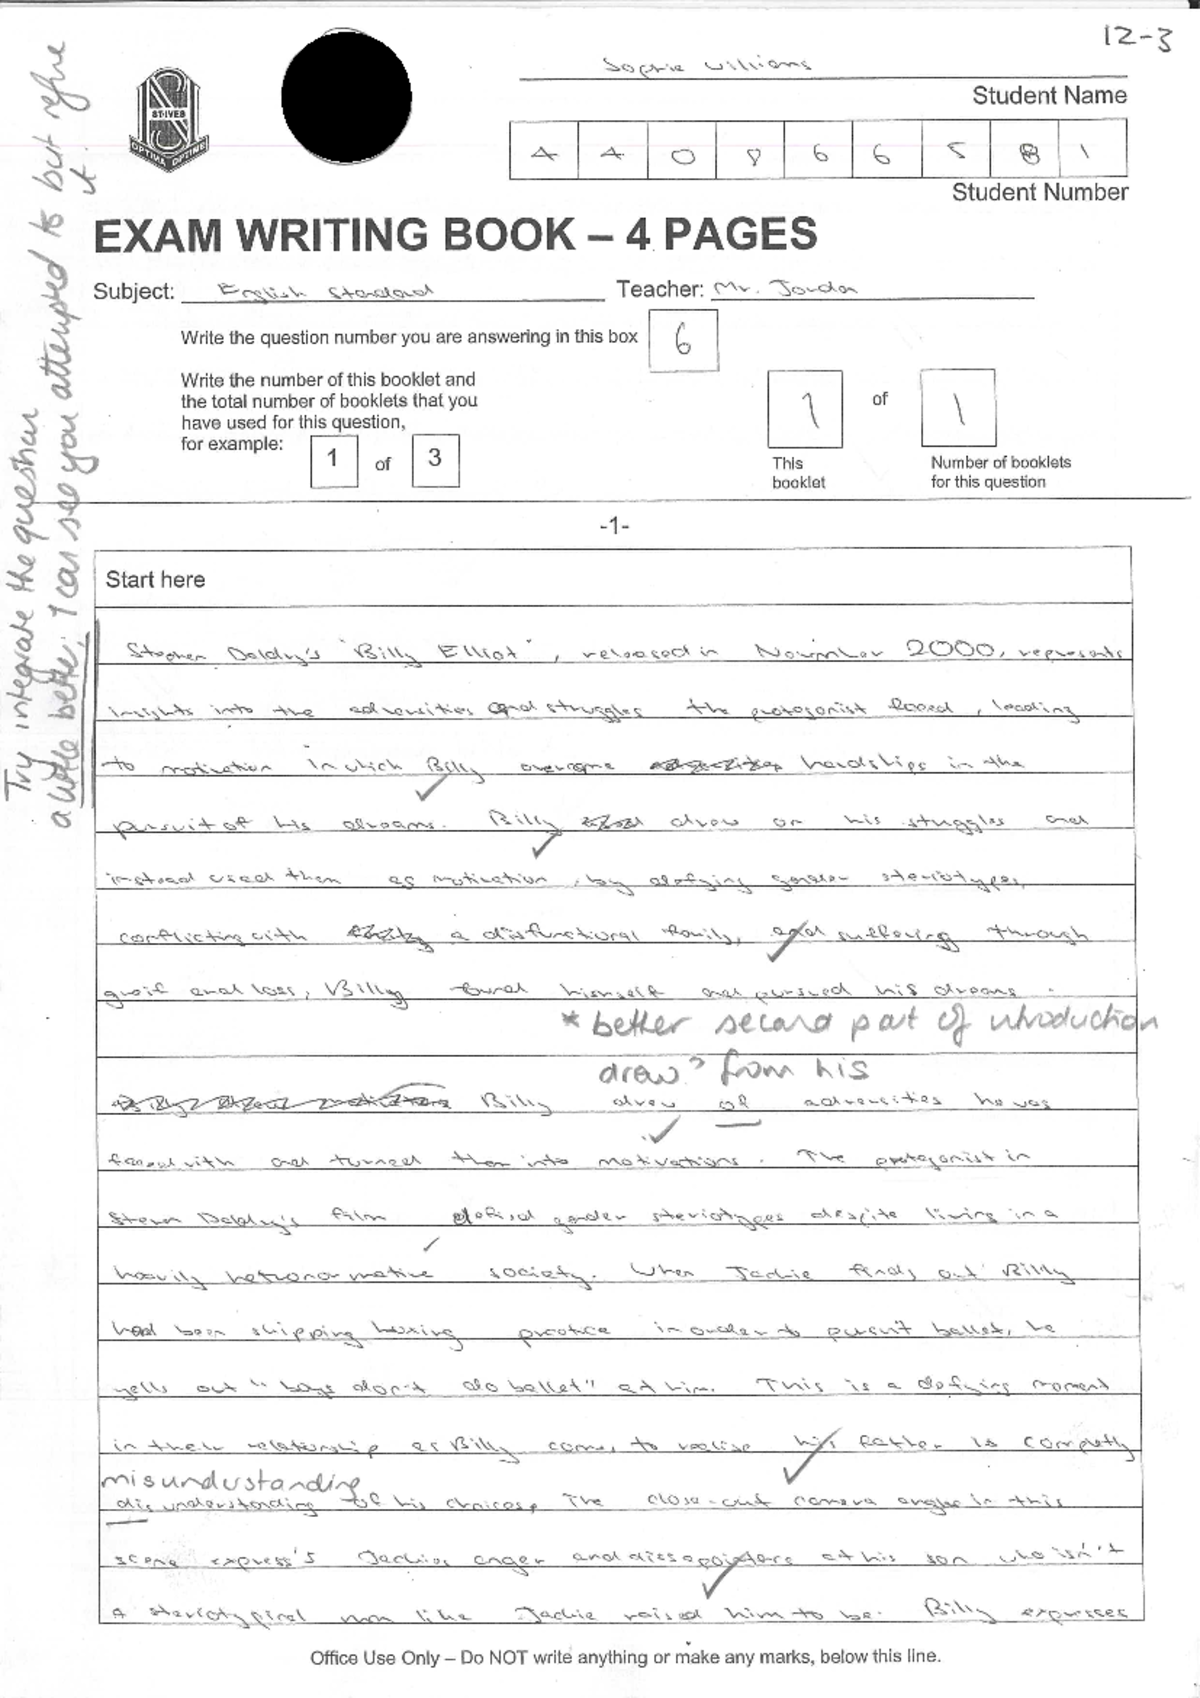 12-3
Sophie Williams
Student Name
ST·IVES
OPTIMA OPTINE
4 4 0 8 6 6 5 8 1
Student Number
EXAM WRITING BOOK – 4 PAGES
Subject: English Standard Teacher: Mr. Jordan
Write the question number you are answering in this box 6
Write the number of this booklet and
the total number of booklets that you
have used for this question,
for example: 1 of 3
1 of 1
This booklet
Number of booklets for this question
Try integrate the question
a little better, I can see you attempted to but refine
it.
-1-
Start here
Stephen Daldry's "Billy Elliot", released in November 2000, represents
insights into the adversities and struggles the protagonist faced, leading
to motivation in which Billy overcame hardships in the
pursuit of his dreams. Billy drew on his struggles and
instead used them as motivation, by defying gender steriotypes,
conflicting with a disfunctional family, and suffering through
greif and loss, Billy found himself and pursued his dreams.
* better second part of introduction
drew? from his
Billy drew of adversities he was
faced with and turned them into motivations. The protagonist in
Steven Daldry's film defied gender steriotypes despite living in a
heavily hetronormative society. When Jackie finds out Billy
had been skipping boxing practice in order to pursuit ballet, he
yells out "boys don't do ballet" at him. This is a defying moment
in their relationship as Billy comes to realise his father is completly
misunderstanding
disunderstanding of his choices, The close-out camera angles in this
scene express's Jackies anger and at his son who isn't
a steriotypical man like Jackie raised him to be. Billy expresses
Office Use Only – Do NOT write anything or make any marks, below this line.